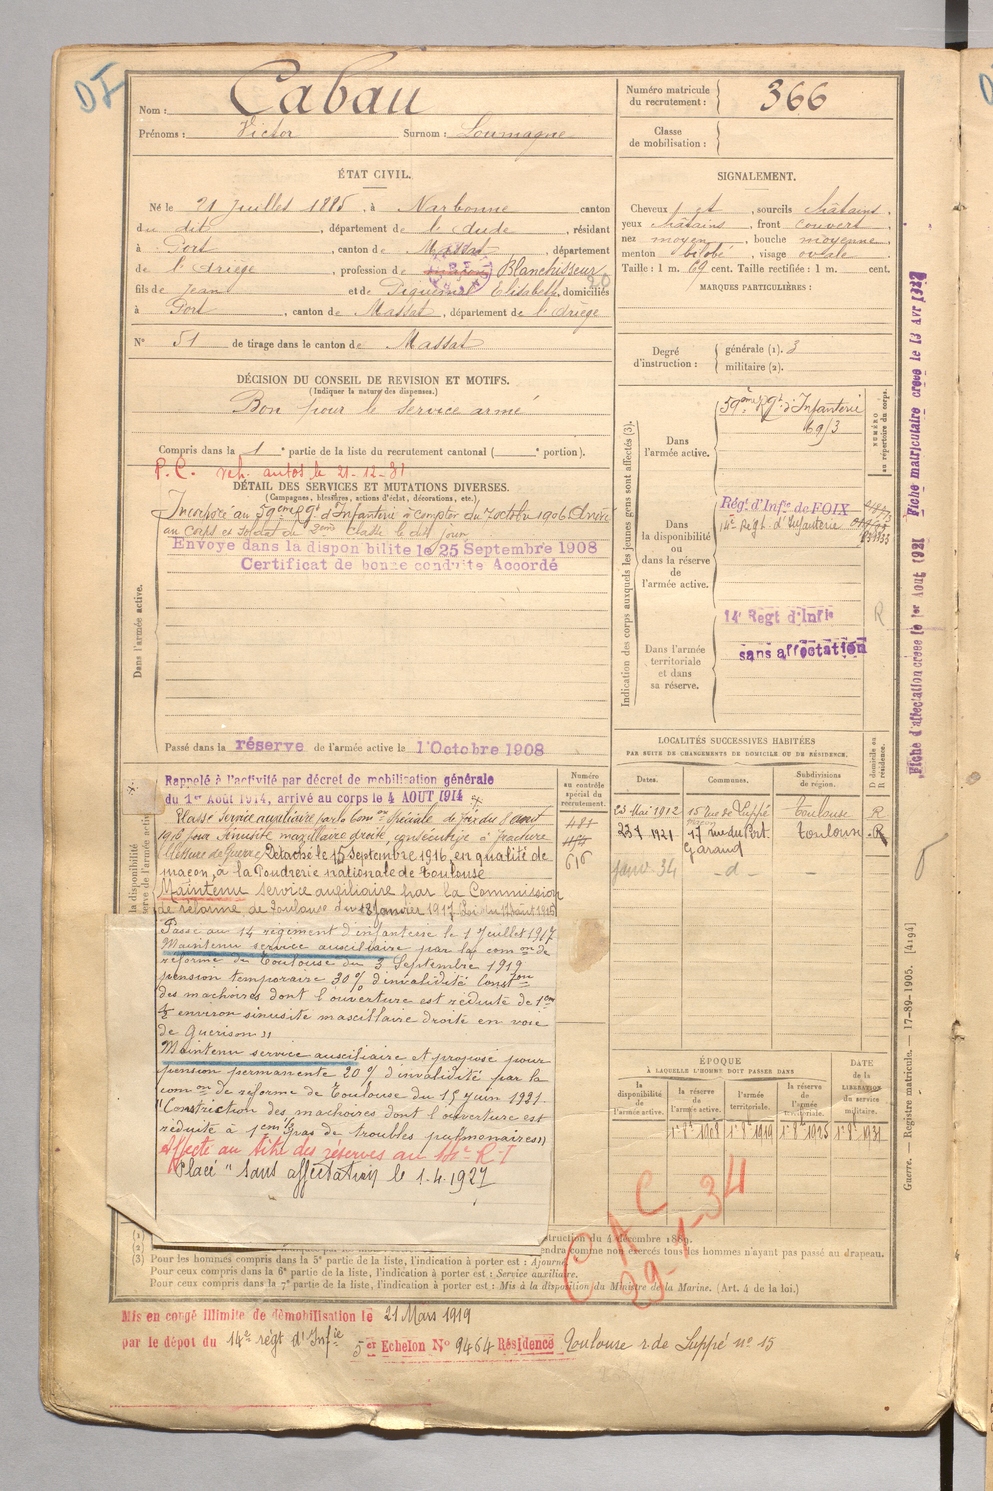 Nom : Cabau
Prénoms : Victor Surnom : Loumagne
ÉTAT CIVIL.
Né le 21 Juillet 1885, à Narbonne canton
du dit, département de l'Aude, résidant
à Port, canton de Massat, département
de l'Ariège, profession de Blanchisseur
fils de Jean et de Piquemal Elisabeth, domiciliés
à Port, canton de Massat, département de l'Ariège
N° 51 de tirage dans le canton de Massat
DÉCISION DU CONSEIL DE REVISION ET MOTIFS.
(Indiquer la nature des dispenses.)
Bon pour le service armé
Compris dans la 1e partie de la liste du recrutement cantonal ( e portion).
P.C. veh. autos le 21-12-31
DÉTAIL DES SERVICES ET MUTATIONS DIVERSES.
(Campagnes, blessures, actions d'éclat, décorations, etc.)
Dans l'armée active.
Incorporé au 59ème Rgt d'Infanterie à compter du 7 octobre 1906 Arrivé
au corps et soldat de 2ème classe le dit jour
Envoyé dans la disponibilité le 25 Septembre 1908
Certificat de bonne conduite Accordé
Passé dans la réserve de l'armée active le 1 Octobre 1908
Rappelé à l'activité par décret de mobilisation générale
du 1er Août 1914, arrivé au corps le 4 AOUT 1914
Classé Service auxiliaire par la Comon Spéciale de Foix du 8 août
1916 pour sinusite maxillaire droite, consécutive à fracture
(blessure de Guerre) Détaché le 15 Septembre 1916, en qualité de
maçon, à la Poudrerie nationale de Toulouse
Maintenu service auxiliaire par la Commission
de réforme de Toulouse du 18 Janvier 1917
Passé au 14 régiment d'infanterie le 1 Juillet 1917
Maintenu service auxiliaire par la comon de
réforme de Toulouse du 3 Septembre 1919
pension temporaire 30% d'invalidité Constion
des machoires dont l'ouverture est réduite de 1cm
½ environ sinusite mascillaire droite en voie
de Guerison"
Maintenu service auxiliaire et proposé pour
pension permanente 20% d'invalidité par la
comon de réforme de Toulouse du 15 juin 1921
"Constriction des machoires dont l'ouverture est
réduite à 1cm ½ pas de troubles pulmonaires"
Affecté au titre des réserves au 14e R.I
"Placé" Sans affectation le 1.4.1927
Numéro
au contrôle
spécial du
recrutement.
616
Numéro matricule
du recrutement : 366
Classe
de mobilisation :
SIGNALEMENT.
Cheveux et, sourcils châtains,
yeux châtains, front couvert,
nez moyen, bouche moyenne,
menton bilobé, visage ovale.
Taille : 1 m. 69 cent. Taille rectifiée : 1 m. cent.
MARQUES PARTICULIÈRES :
Degré
d'instruction : générale (1). 3
militaire (2).
Indication des corps auxquels les jeunes gens sont affectés (3).
NUMÉRO
au répertoire du corps.
Dans
l'armée active. 59ème Rgt d'Infanterie
69/3
Dans
la disponibilité
ou
dans la réserve
de
l'armée active.
Régt d'Infie de FOIX
14e Régt d'Infanterie
Dans l'armée
territoriale
et dans
sa réserve.
14e Regt d'Infie
sans affectation
R
LOCALITÉS SUCCESSIVES HABITÉES
PAR SUITE DE CHANGEMENTS DE DOMICILE OU DE RÉSIDENCE.
Dates. Communes. Subdivisions de région. D domicile ou R résidence.
23 Mai 1912 15 rue de Suppé Toulouse R
23 7 1921 17 rue du Pont Garaud Toulouse R
janv. 34 - d - -
ÉPOQUE
À LAQUELLE L'HOMME DOIT PASSER DANS
la disponibilité de l'armée active.
la réserve de l'armée active.
l'armée territoriale.
la réserve de l'armée territoriale.
DATE de la LIBÉRATION du service militaire.
1er 8bre 1908 1er 8bre 1919 1er 8bre 1925 1er 8bre 1931
C A C
29-1-34
struction du 4 décembre 1889.
endra comme non exercés tous les hommes n'ayant pas passé au drapeau.
(1)
(2)
(3) Pour les hommes compris dans la 5e partie de la liste, l'indication à porter est : Ajourné
Pour ceux compris dans la 6e partie de la liste, l'indication à porter est : Service auxiliaire.
Pour ceux compris dans la 7e partie de la liste, l'indication à porter est : Mis à la disposition du Ministre de la Marine. (Art. 4 de la loi.)
Mis en congé illimité de démobilisation le 21 Mars 1919
par le dépot du 14e régt d'Infie 5er Echelon N° 9464 Résidence Toulouse r. de Suppé n° 15
Fiche d'affectation créée le 1er Aout 1921 Fiche matriculaire créée le 13 Avr 1927
Guerre. — Registre matricule. — 17-89-1905. [4194]